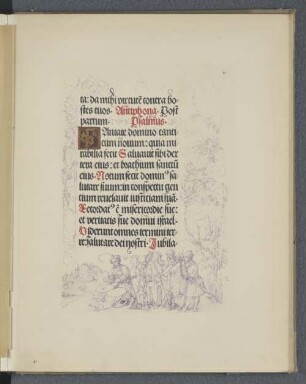 ta: da mihi virtutē contra ho
stes tuos. Antiphona. Post
partum. Psalmus.
Cantate domino canti
cum novum: quia mi
rabilia fecit Salvavit sibi dex
tera eius: et brachium sanctū
eius. Notum fecit dominꝰ sa
lutare suum: in conspectu gen
tium revelavit iustitiam suā.
Recordatꝰ ē misericordie sue:
et veritatis sue domui israel.
Viderunt omnes termini ter
re: salutare dei nostri. Iubila